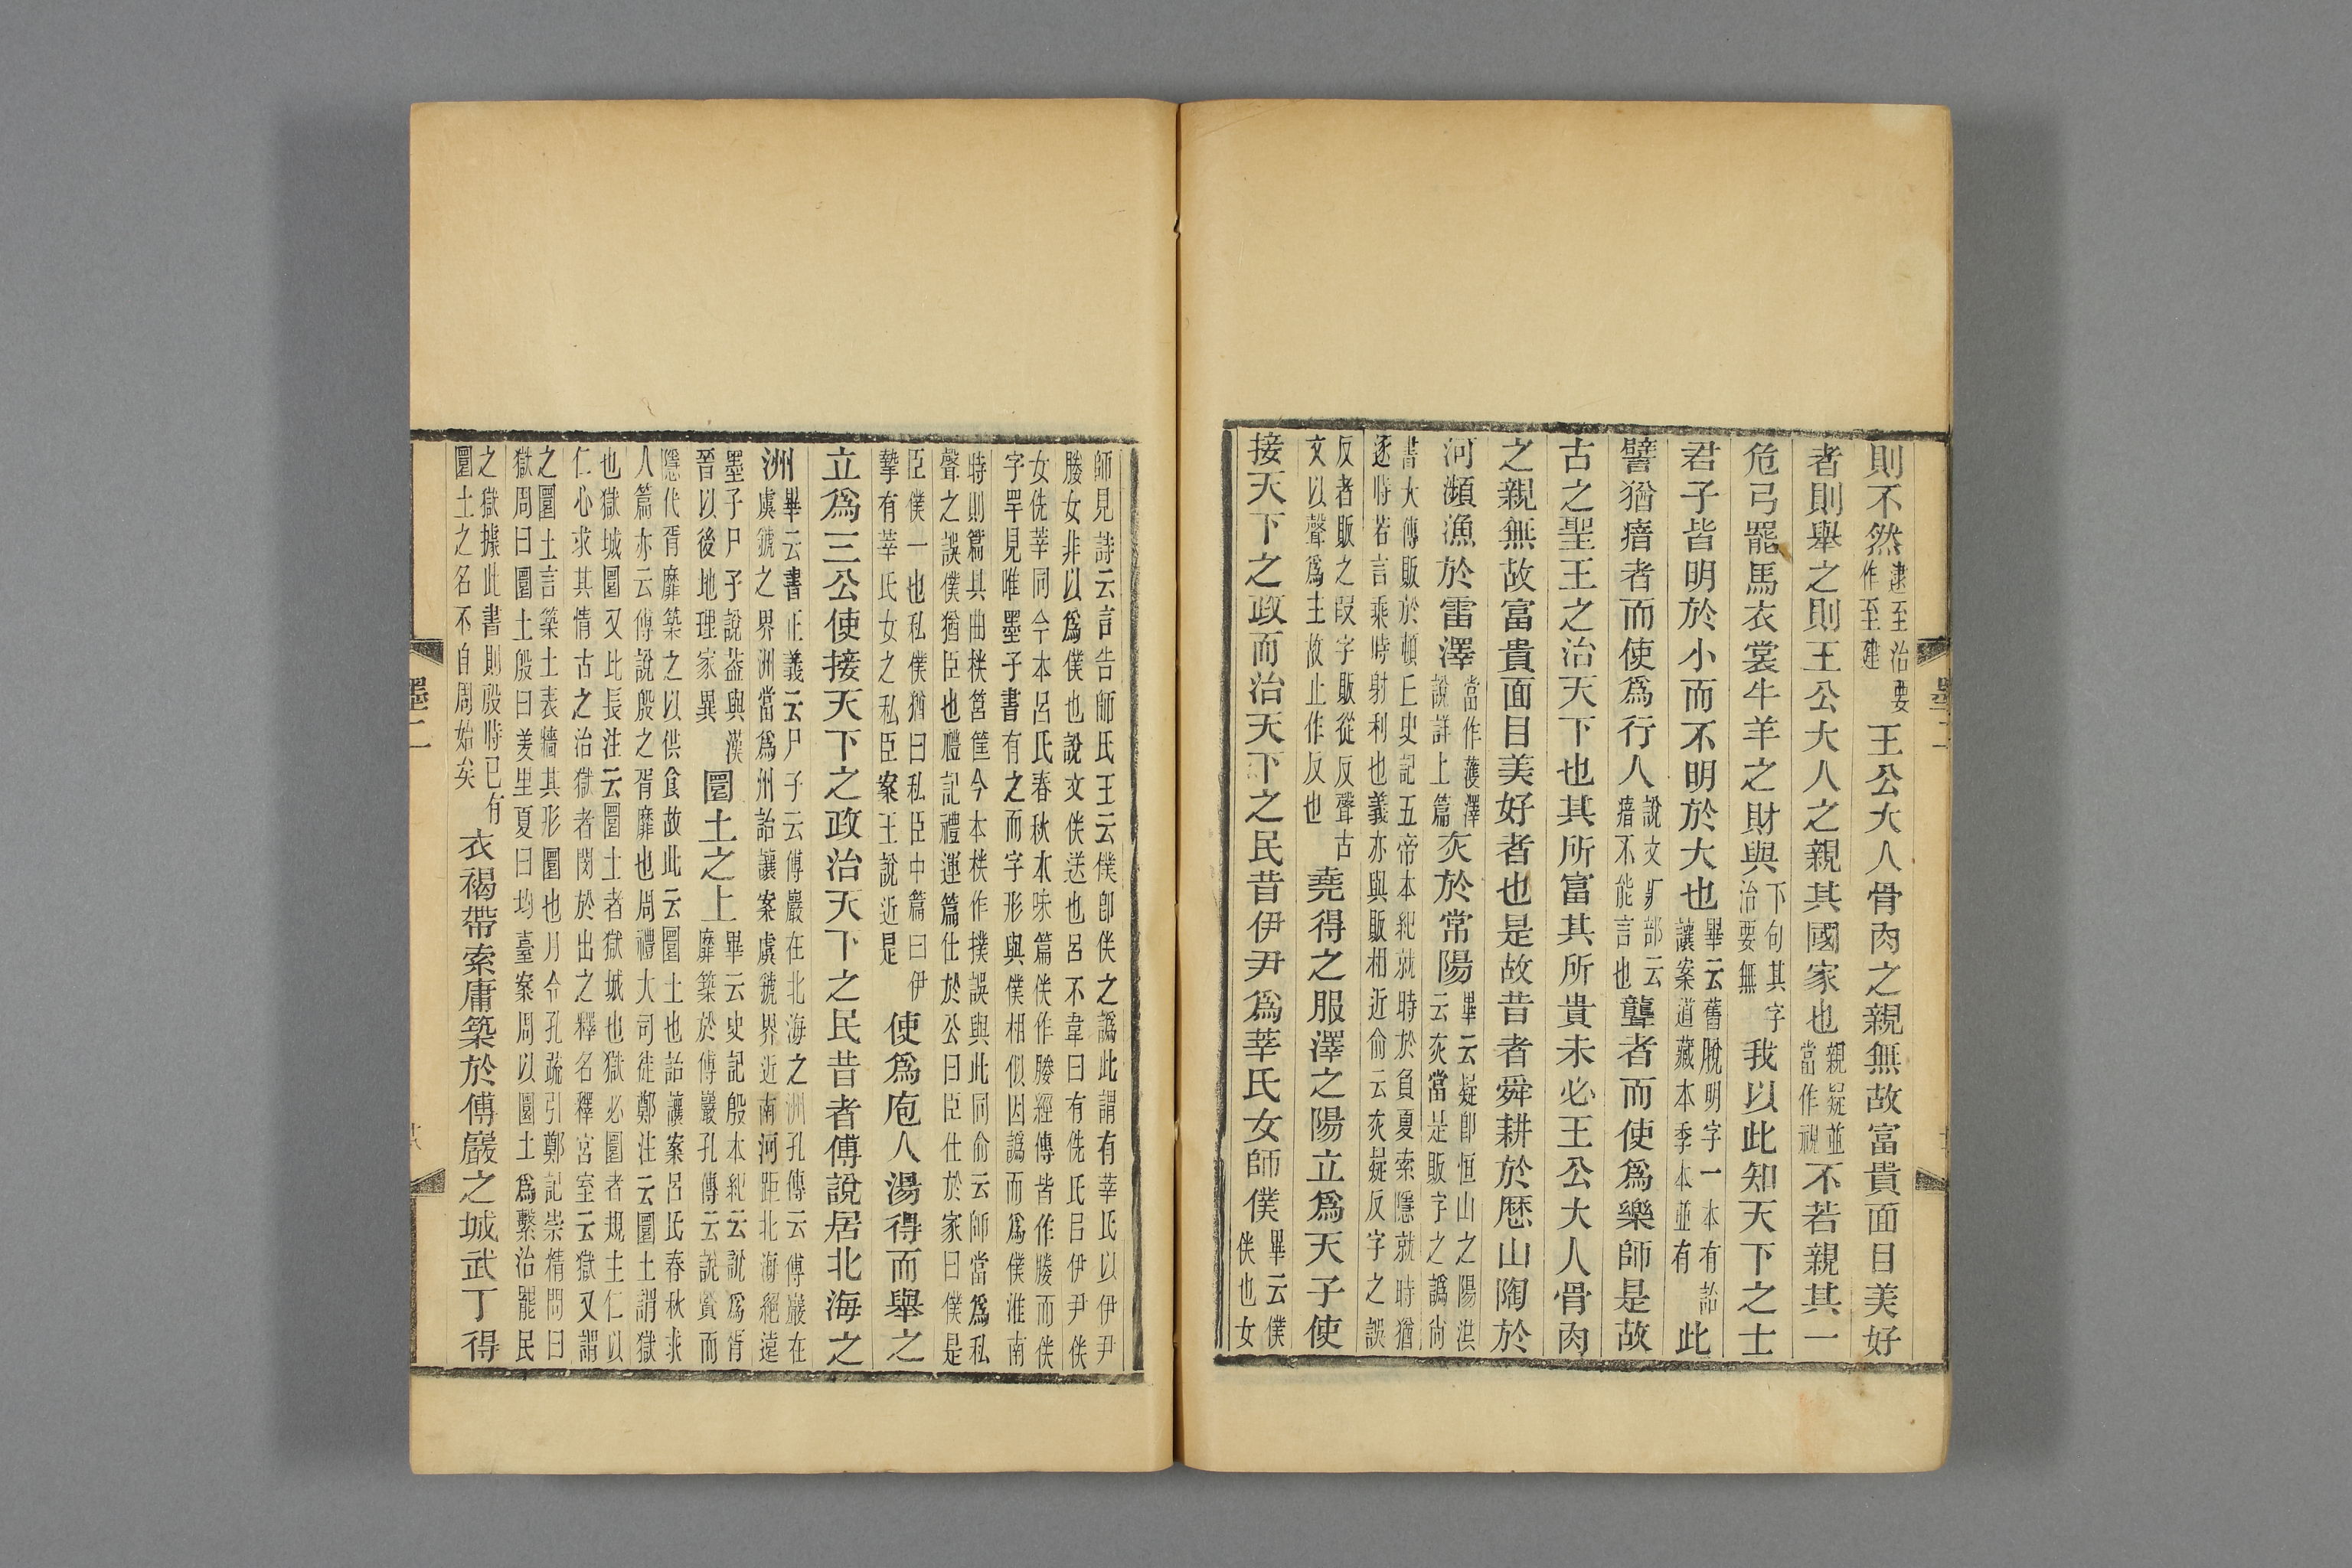 則不然逮至治要作至建王公大人骨肉之親無故富貴面目美好
者則舉之則王公大人之親其國家也親疑並當作視不若親其一
危弓罷馬衣裳牛羊之財與下句其字治要無我以此知天下之士
君子皆明於小而不明於大也畢云舊脫明字一本有詒讓案道藏本季本並有此
譬猶瘖者而使爲行人說文疒部云瘖不能言也聾者而使爲樂師是故
古之聖王之治天下也其所富其所貴未必王公大人骨肉
之親無故富貴面目美好者也是故昔者舜耕於歷山陶於
河瀕漁於雷澤當作濩澤說詳上篇灰於常陽畢云疑卽恒山之陽洪云灰當是販字之譌尚
書大傳販於頓丘史記五帝本紀就時於負夏索隱就時猶
逐時若言乘時射利也義亦與販相近俞云灰疑反字之誤
反者販之叚字販從反聲古文以聲爲主故止作反也堯得之服澤之陽立爲天子使
接天下之政而治天下之民昔伊尹爲莘氏女師僕畢云僕佚也女
師見詩云言告師氏王云僕卽佚之譌此謂有莘氏以伊尹
媵女非以爲僕也說文佚送也呂不韋曰有侁氏㠯伊尹佚
女侁莘同今本呂氏春秋本味篇佚作媵經傳皆作媵而佚
字罕見唯墨子書有之而字形與僕相似因譌而爲僕淮南
時則篇其曲挾筥筐今本挾作撲誤與此同俞云師當爲私
聲之誤僕猶臣也禮記禮運篇仕於公曰臣仕於家曰僕是
臣僕一也私僕猶曰私臣中篇曰伊摯有莘氏女之私臣案王說近是使爲庖人湯得而舉之
立爲三公使接天下之政治天下之民昔者傅說居北海之
洲畢云書正義云尸子云傅巖在北海之洲孔傳云傅巖在虞虢之界洲當爲州詒讓案虞虢界近南河距北海絕遠
墨子尸子說蓋與漢晉以後地理家異圜土之上畢云史記殷本紀云說爲胥靡築於傅巖孔傳云說賢而
隱代胥靡築之以供食故此云圜土也詒讓案呂氏春秋求
人篇亦云傅說殷之胥靡也周禮大司徒鄭注云圜土謂獄
也獄城圜又比長注云圜土者獄城也獄必圜者規主仁以
仁心求其情古之治獄者閔於出之釋名釋宮室云獄又謂
之圜土言築土表牆其形圜也月令孔疏引鄭記崇精問曰
獄周曰圜土殷曰羑里夏曰均臺案周以圜土爲繫治罷民
之獄據此書則殷時已有圜土之名不自周始矣衣褐帶索庸築於傅巖之城武丁得
墨二